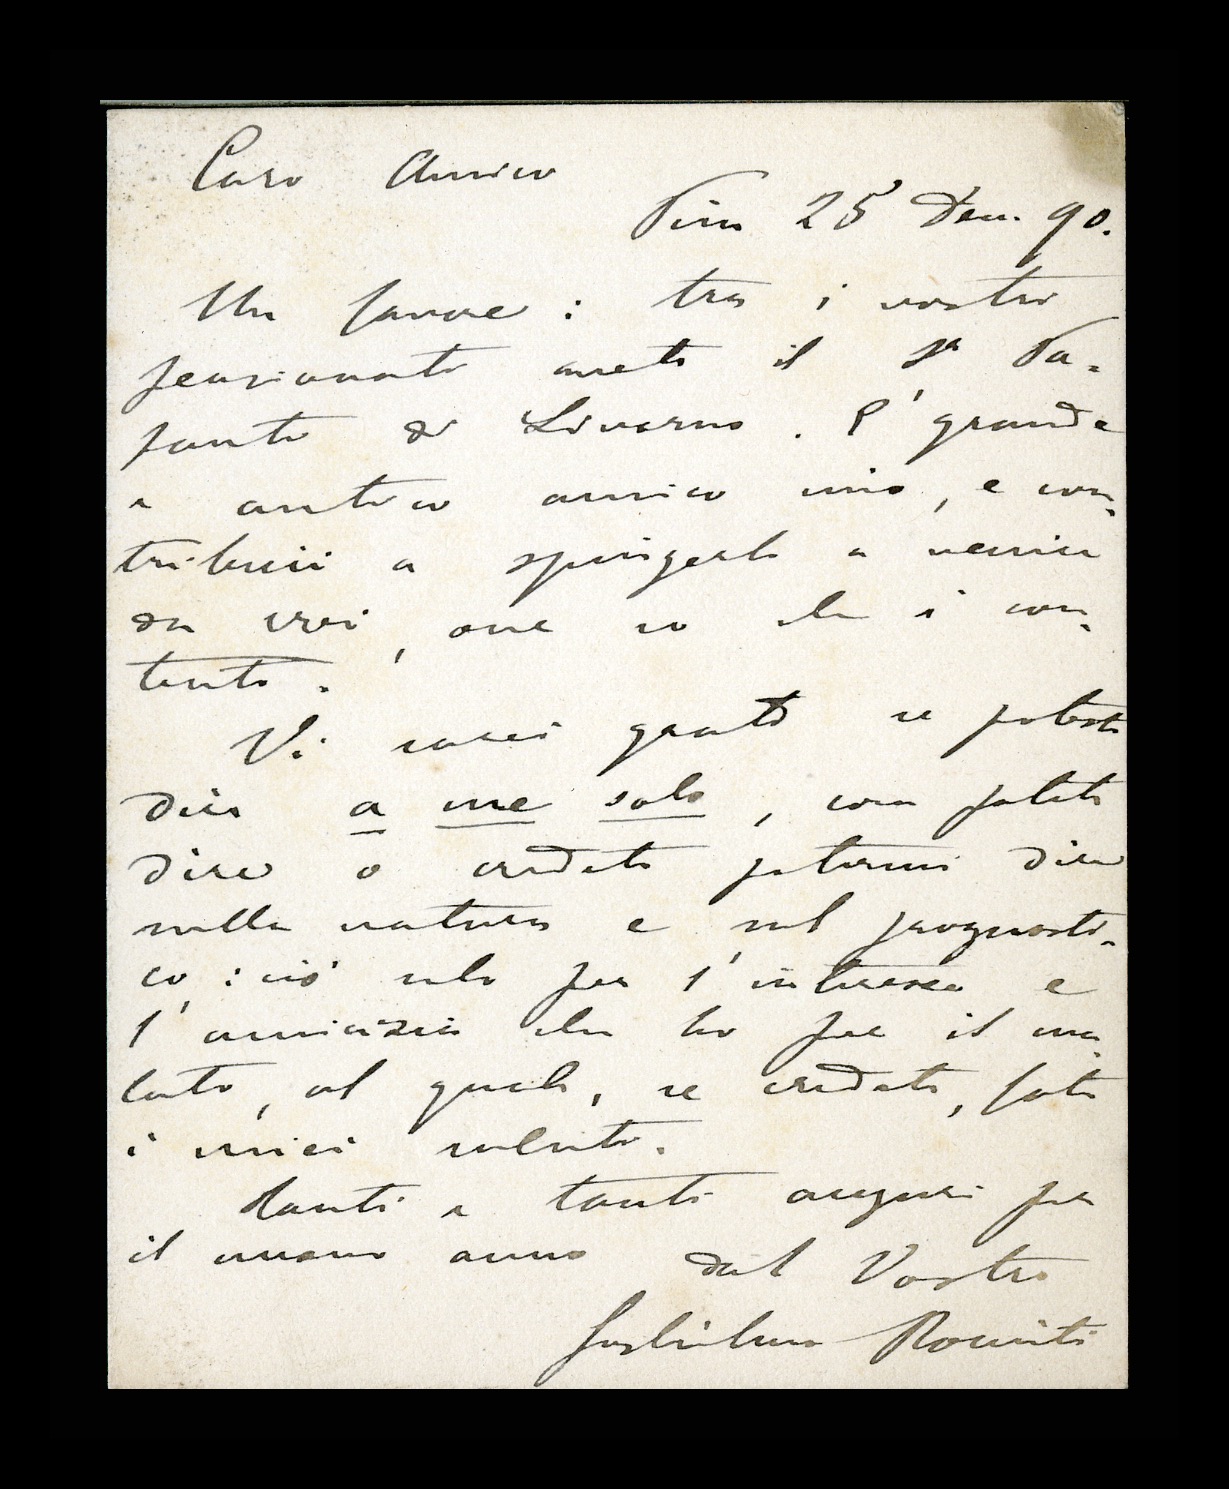 Caro Amico
Pisa 25 Dcu. 90.
Un favore: tra i vostri
pensionanti avete il Sr Pa-
panti di Livorno. È grande
e antico amico mio, e con-
tribuii a spingerlo a venire
da voi, ove so che è con-
tento.
Vi sarei grato se poteste
dire a me solo, cosa potete
dire o credete potermi dire
sulla natura e sul prognosti-
co: ciò solo per l'interesse e
l'amicizia che ho per il ma-
lato, al quale, se credete, fate
i miei saluti.
Tanti e tanti auguri per
il nuovo anno dal Vostro
Guglielmo Romiti